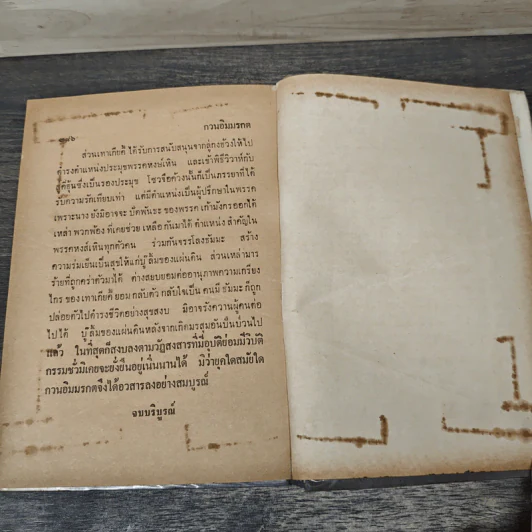 ๗๖
กวนอิมมรกต
ส่วนเทาเกียคี้ ได้รับการสนับสนุนจากลุ่กงฮ้วงให้ไป
ดำรงตำแหน่งประมุขพรรคหงษ์เหิน และเข้าพิธีวิวาห์กับ
ซึ่งเป็นรองประมุข โซวจือต้วงนั้นก็เป็นภรรยาที่ได้
รับความรักเทียบเท่า แต่มีตำแหน่งเป็นผู้ปรึกษาในพรรค
เพราะนาง ยังมิอาจจะ ปิดพันธะ ของพรรค เก้ามังกร ออกได้
เหล่า พวกพ้อง ที่เคยช่วย เหลือ กันมาได้ ตำแหน่ง สำคัญใน
พรรคหงส์เหินทุกตัวคน ร่วมกันจรรโลงธัมมะ สร้าง
ความร่มเย็นเป็นสุขให้แก่บู๊ลิ้มของแผ่นดิน ส่วนเหล่ามาร
ร้ายที่ถูกคร่าตัวมาได้ ต่างสยบยอมต่ออานุภาพความเกรียง
ไกร ของ เทาเกียคี้ ยอม กลับตัว กลับใจเป็น คนมี ธัมมะ ก็ถูก
ปล่อยตัวไปดำรงชีวิตอย่างสุขสงบ มิอาจรังควานผู้คนต่อ
ไปได้ บู๊ลิ้มของแผ่นดินหลังจากเกิดมรสุมอันปั่นป่วนไป
แล้ว ในที่สุดก็สงบลงตามวัฏสงสารที่มีอุบัติย่อมมีวิบัติ
กรรมชั่วมิเคยจะยั่งยืนอยู่เนิ่นนานได้ มิว่ายุคใดสมัยใด
กวนอิมมรกตจึงได้อวสารลงอย่างสมบูรณ์
จบบริบูรณ์